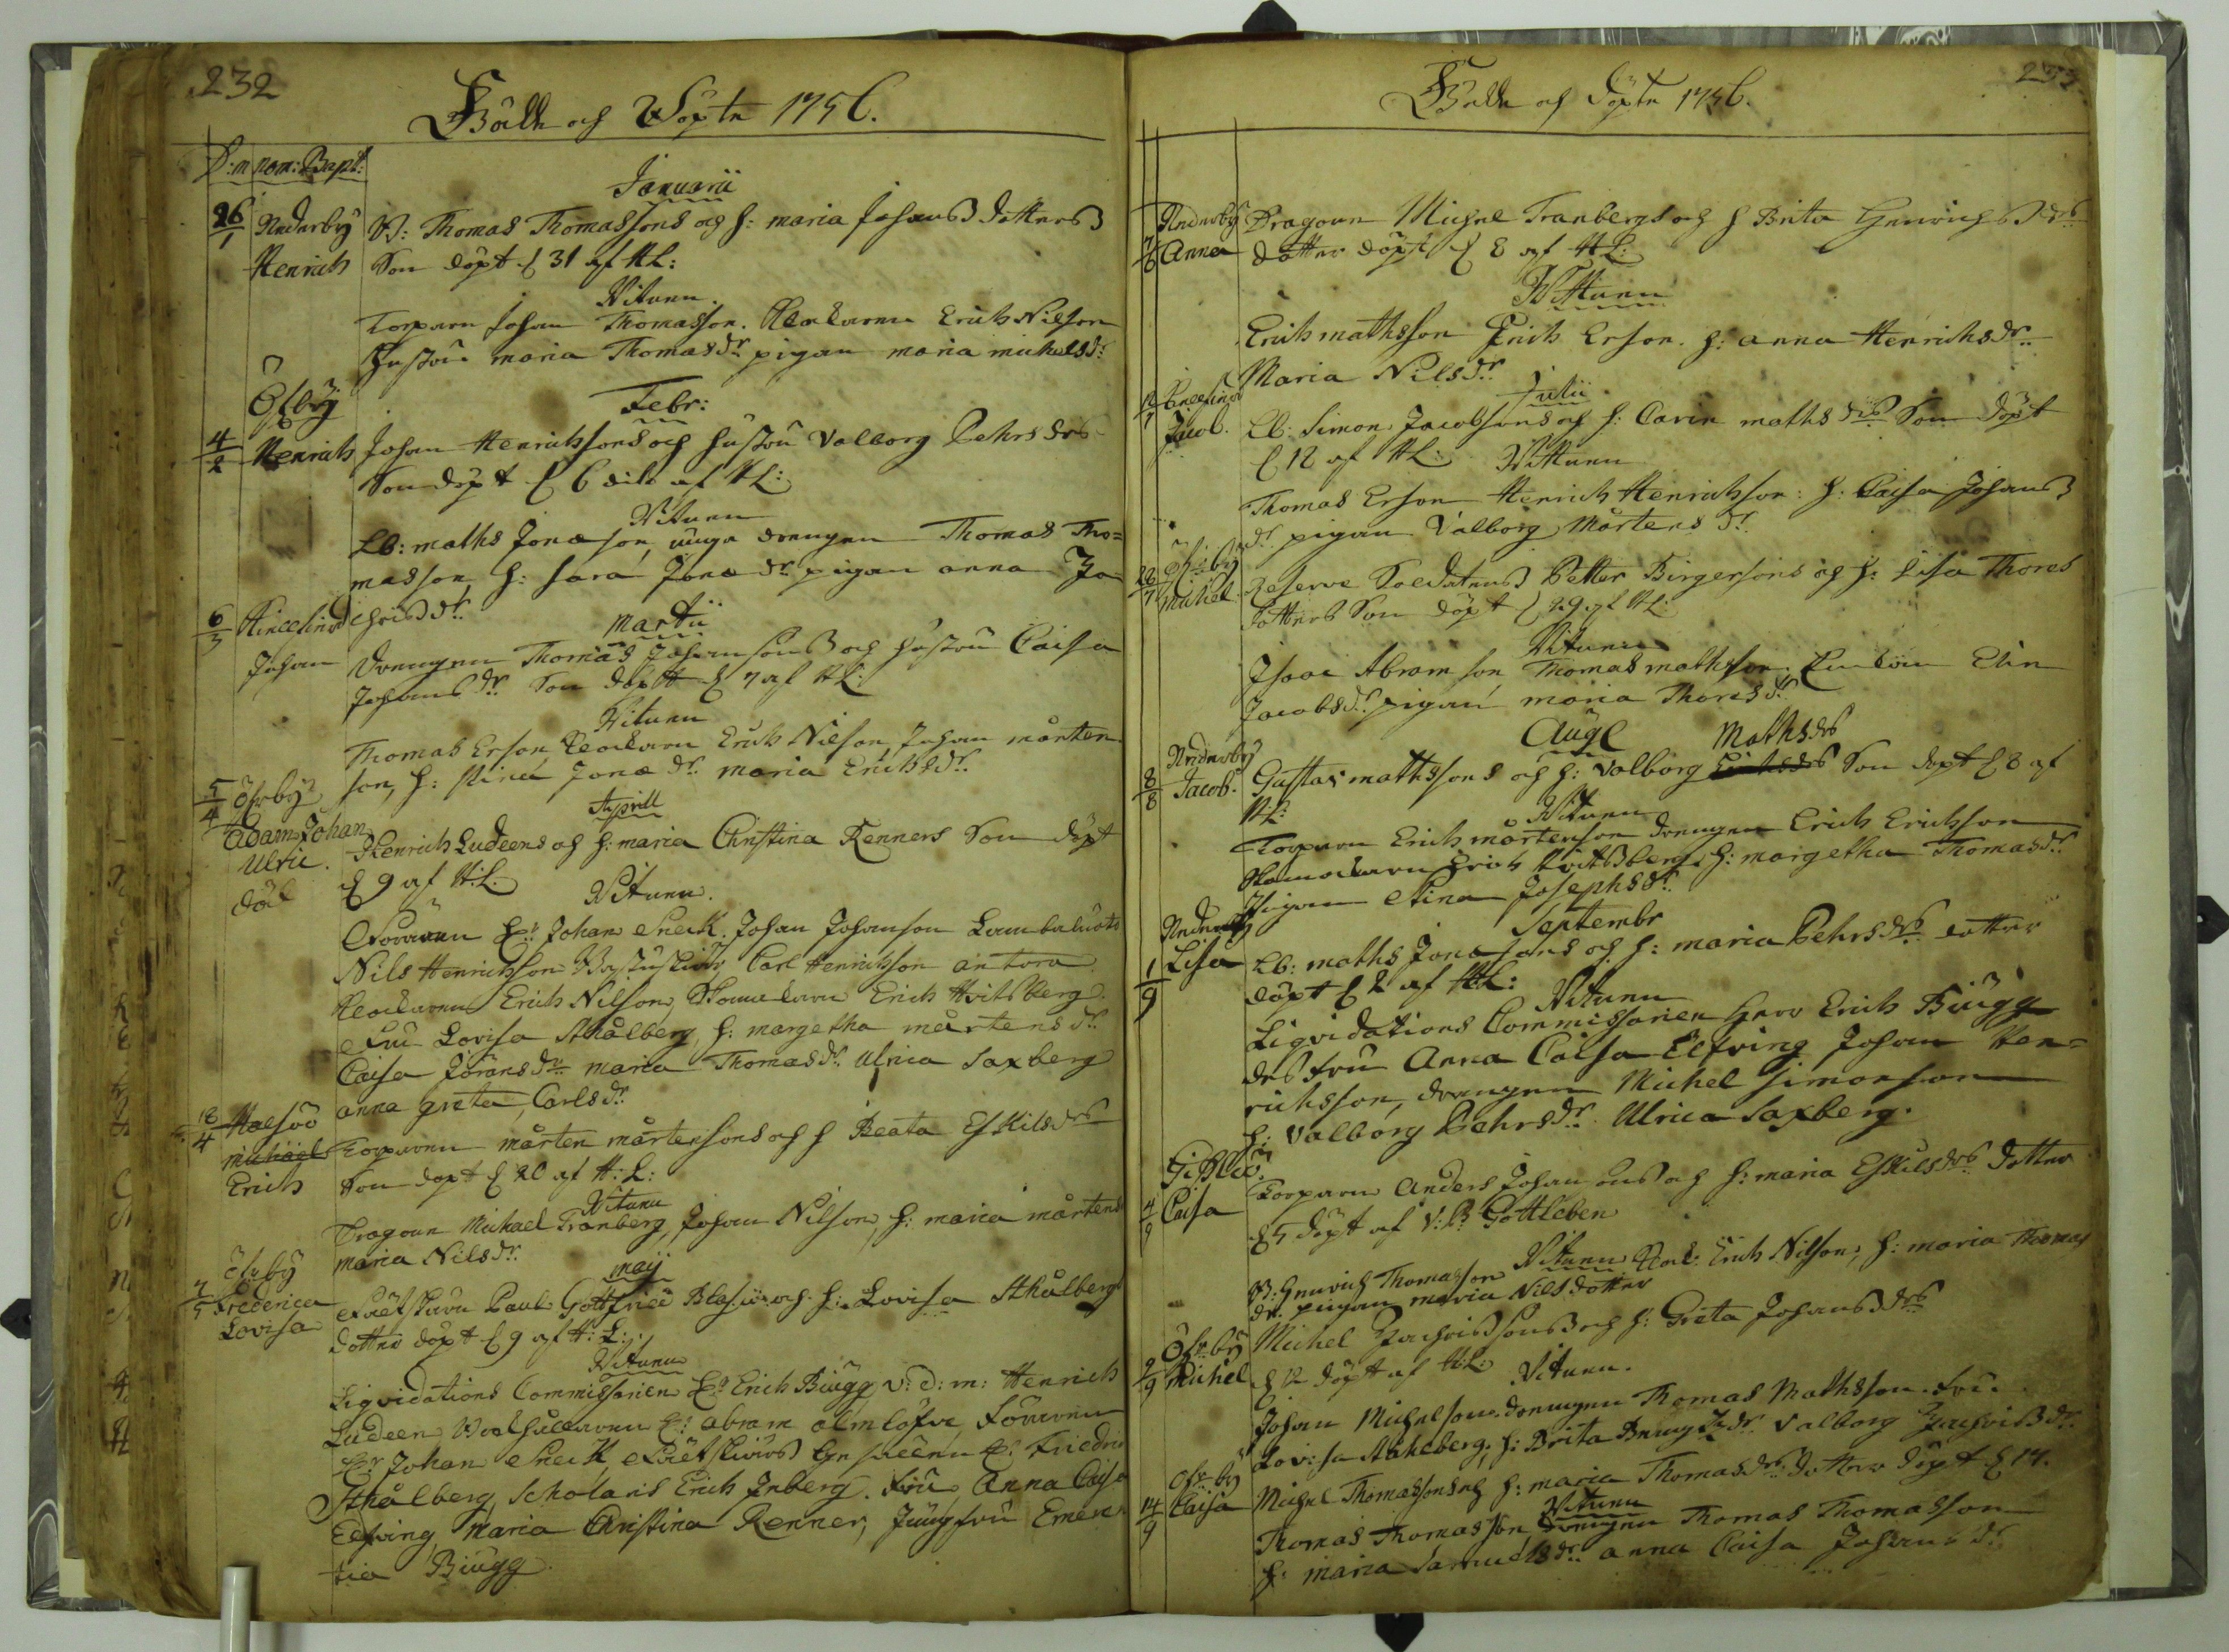 232
Födde och Döpte 1756.
D: m nom: Bapt:
Januarii
26/1 Nederby B: Thomas Thomassons och h: maria Johans dotters
Henrich Son döpt d 31 af HL:
Vitnen.
Torparen Johan Thomasson. Klockaren Erich Nilson
hustru maria Thomasdr. pigan maria michelsdr:
Öfvby
Febr:
4/2 Henrich Johan Henrichssons och hustru Valborg Pehrs drs
Son döpt d 6 dito af HL:
Vitnen
LB: maths Jonæson, unga drengen Thomas Tho=
masson, h: sara Jonædr. pigan anna Za
chrisdr.
6/3 Martii
Johan Drengen Thomas Johansons och hustru Caisa
Johansdr. Son döpt d 7 af HL:
Vitnen
Thomas Erson, Klockaren Erich Nilson, Johan mårten
son, h: stina Jonædr. maria Erichsdr.
5/4 Öfvby Aprill
Adam Johan Henrich Ludeens och h: maria Christina Renners Son döpt
Ulric. d 9 af H:L.
död Vitnen.
Föraren Hr Johan Sneck. Johan Johanson
Nils Henrichson Carl Henrichson
Klockaren Erich Nilson, Erich Hvitsberg
Fru Lovisa Ståhlberg, h: margetha mårtensdr.
Caisa Jöransdr. maria Thomasdr. Ulrica Saxberg
anna greta, Carlsdr.
18/4
michael Torparen mårten mårtensons och h Beata Eskilsdrs
Erich Son döpt d 20 af H:L:
Vitnen
Dragoun Michael Tranberg, Johan Nilson, h: maria mårtens
maria Nilsdr.
Öfvby maij
7/5 Frederica Paul Gottfried Blasii och h: Lovisa Ståhlbergs
Lovisa dotter döpt d 9 af H:L:
Vitnen
Liqvidations Commissarien Hr Erich Biugg v: d: m: Henrich
Ludeen, Hr: Abram almlöfve, Föraren
Hr Johan Sneck, Hr: Friedric
Ståhlberg, Scholaris Erich Inberg. Fru Anna Caisa
Elfving Maria Christina Renner, Jungfru Emeren
tia Biugg.
233
Födde och Döpte 1756.
Nederby Dragoun Michel Tranbergs och h Brita Henrichsdrs
7/6 Anna dotter döpt d 8 af HL:
Vittnen
Erich mathsson Erich Erson. h: anna Henrichsdr.
Maria Nilsdr.
Julii
12/7 Jacob. LB: Simon Jacobsons och h: Carin mathsdrs Son döpt
d 12 af HL: Vittnen
Thomas Erson Henrich Henrichson: h: Caisa Johans
dr. pigan Valborg Mårtensdr.
Öfvby
28/7 Michel Reserve Soldatens Petter Birgersons och h: Lisa Thores
dotters Son döpt d 29 af HL:
Vitnen
Isaac Abramson Thomas mathsson, Elin
Jacobsdr. pigan maria Thoresdr.
Aug
Nederby Mathsdrs
8/8 Jacob. Gustav mathssons och h: Valborg Son döpt d 8 af
HL: Vitnen
Torparen Erich mårtenson drengen Erich Erichson
Erich Hvitsberg, h: margetha Thomasdr.
Pigan Stina Josephsdr.
Septembr
Nederby
1/9 Lisa LB: maths Jonæsons och h: maria Pehrsdrs dotter
döpt d 2 af HL:
Vitnen
Liqvidations Commissarien Herr Erich Biugg
des fru Anna Caisa Elfving Johan Hen=
richsson, drengen Michel Simonson
h: Valborg Pehrsdr. Ulrica Saxberg.
4/9 Caisa Torparen Anders Johansons och h: maria Eskilsdrs dotter
d 5 döpt af V:P: Gottleben
Vitnen
B: Henrich Thomasson Klock: Erich Nilson, h: maria Thomas
dr. pigan maria Nilsdotter
Öfvby Michel Zachrissons och h: Greta Johansdrs
9/9 Michel d 12 döpt af HL: Vitnen.
Johan Michelson, drengen Thomas Mathsson. fru
Lovisa Ståhlberg, h: Brita Valborg Zachrisdr.
Öfvby
14/9 Caisa Michel Thomassons och h: maria Thomasdrs dotter döpt d 14.
Vitnen
Thomas Thomasson drengen Thomas Thomasson
h: maria Samuelsdr. anna Caisa Johansdr